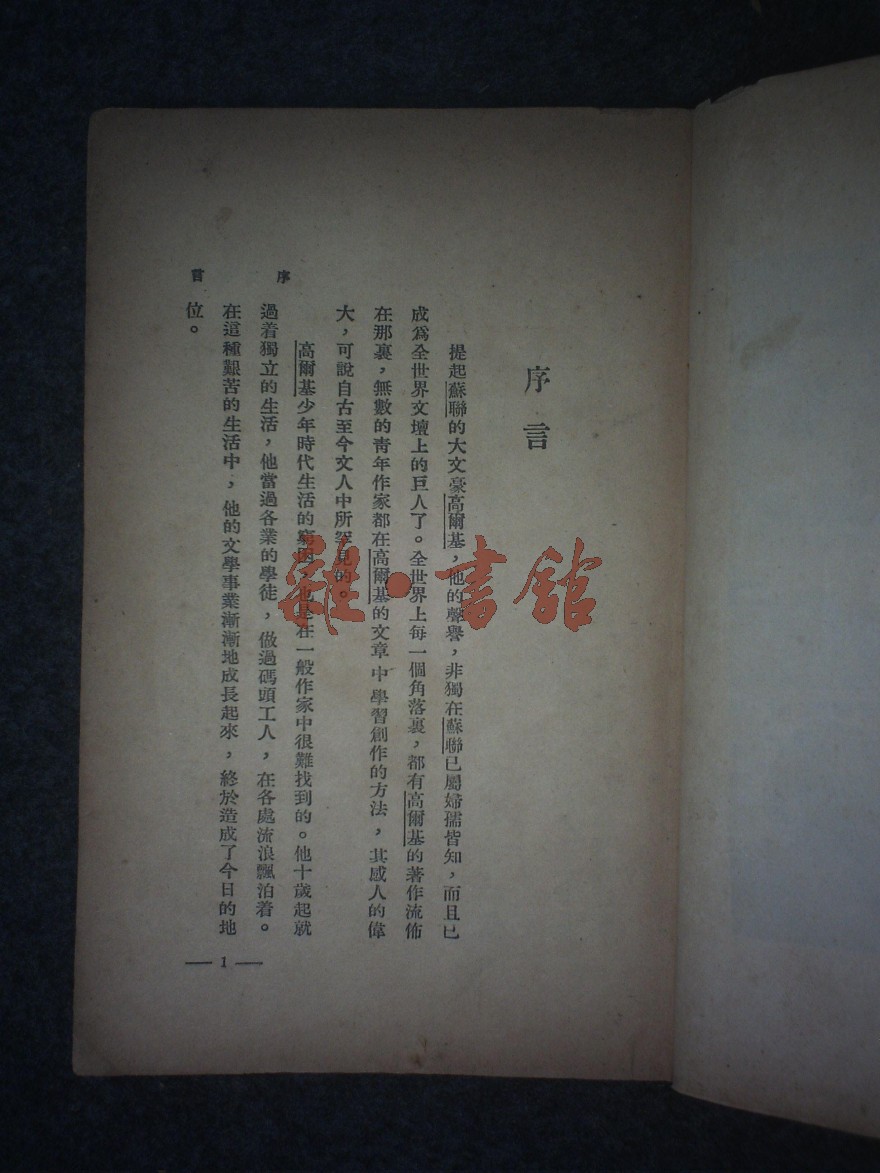 序言
提起蘇聯的大文豪高爾基，他的聲譽，非獨在蘇聯已屬婦孺皆知，而且已
成爲全世界文壇上的巨人了。全世界上每一個角落裏，都有高爾基的著作流佈
在那裏，無數的青年作家都在高爾基的文章中學習創作的方法，其感人的偉
大，可說自古至今文人中所罕見的。
高爾基少年時代生活的窮困，也是在一般作家中很難找到的。他十歲起就
過着獨立的生活，他當過各業的學徒，做過碼頭工人，在各處流浪飄泊着。
在這種艱苦的生活中，他的文學事業漸漸地成長起來，終於造成了今日的地
位。
序言
— 1 —
雜·書館